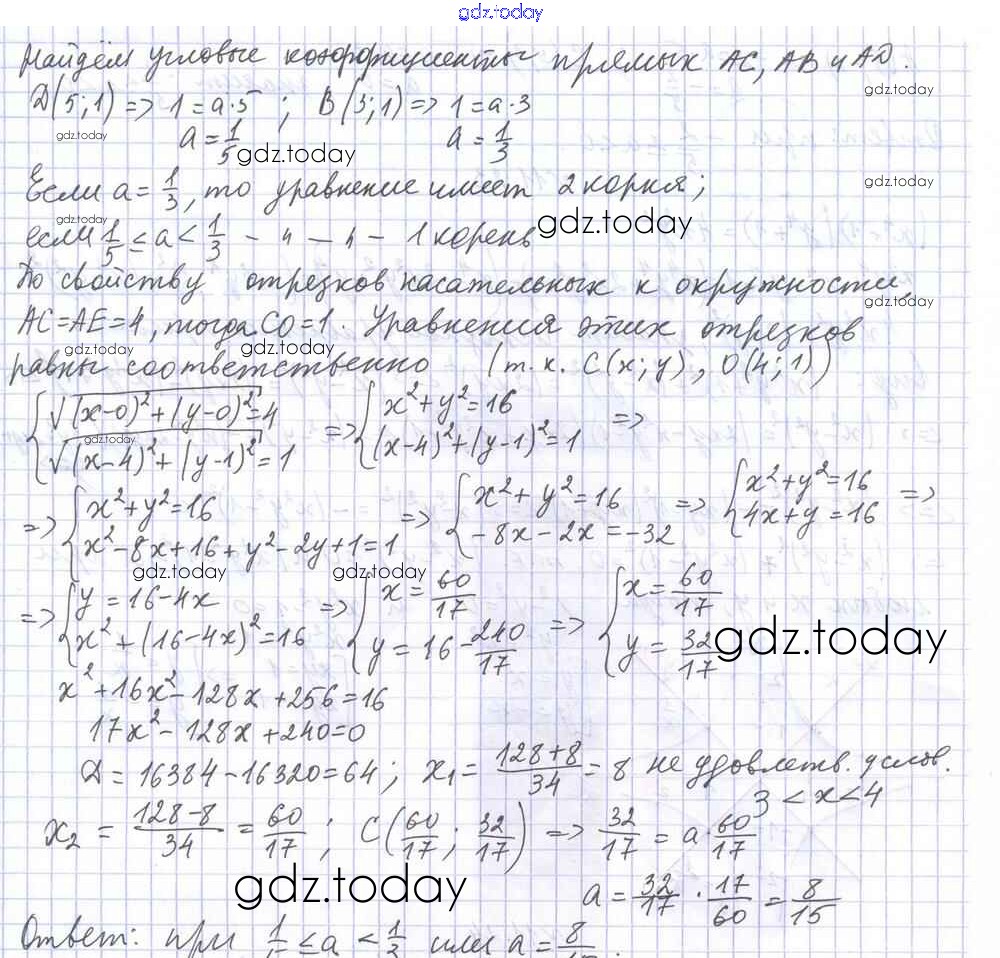 gdz.today
Найдём угловые коэффициенты прямых AC, AB и AD.
D(5;1) => 1=a·5 ; B(3;1) => 1=a·3
gdz.today
gdz.today
a=1/5 a=1/3
gdz.today
Если a=1/3, то уравнение имеет 2 корня;
gdz.today
gdz.today
gdz.today
если 1/5 ≤ a < 1/3 - 4 - 4 - 1 корень
По свойству отрезков касательных к окружности,
gdz.today
AC=AE=4, тогда CO=1. Уравнения этих отрезков
gdz.today gdz.today
равны соответственно (т.к. C(x;y), O(4;1))
{√((x-0)²+(y-0)²)=4 => {x²+y²=16 =>
gdz.today
{√((x-4)²+(y-1)²)=1 {(x-4)²+(y-1)²=1
=> {x²+y²=16 => {x²+y²=16 => {x²+y²=16 =>
{x²-8x+16+y²-2y+1=1 {-8x-2x=-32 {4x+y=16
gdz.today gdz.today
=> {y=16-4x => {x=60/17 => {x=60/17
{x²+(16-4x)²=16 {y=16-240/17 {y=32/17
gdz.today
x²+16x²-128x+256=16
17x²-128x+240=0
D=16384-16320=64; x₁=(128+8)/34=8 не удовлетв. услов.
3<x<4
x₂=(128-8)/34=60/17 ; C(60/17; 32/17) => 32/17=a·60/17
gdz.today
a=32/17·17/60=8/15
Ответ: при 1/5 ≤ a < 1/3 или a=8/15.